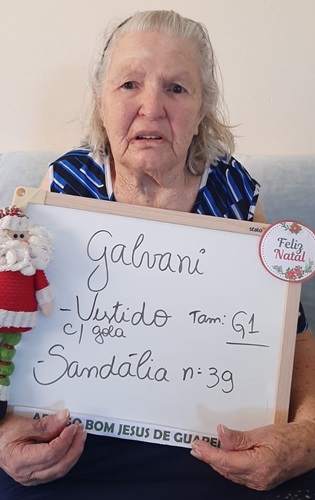 stalo
Galvani
Feliz
Natal
- Vestido Tam: G1
c/ gola
- Sandália nº 39
BOM JESUS DE